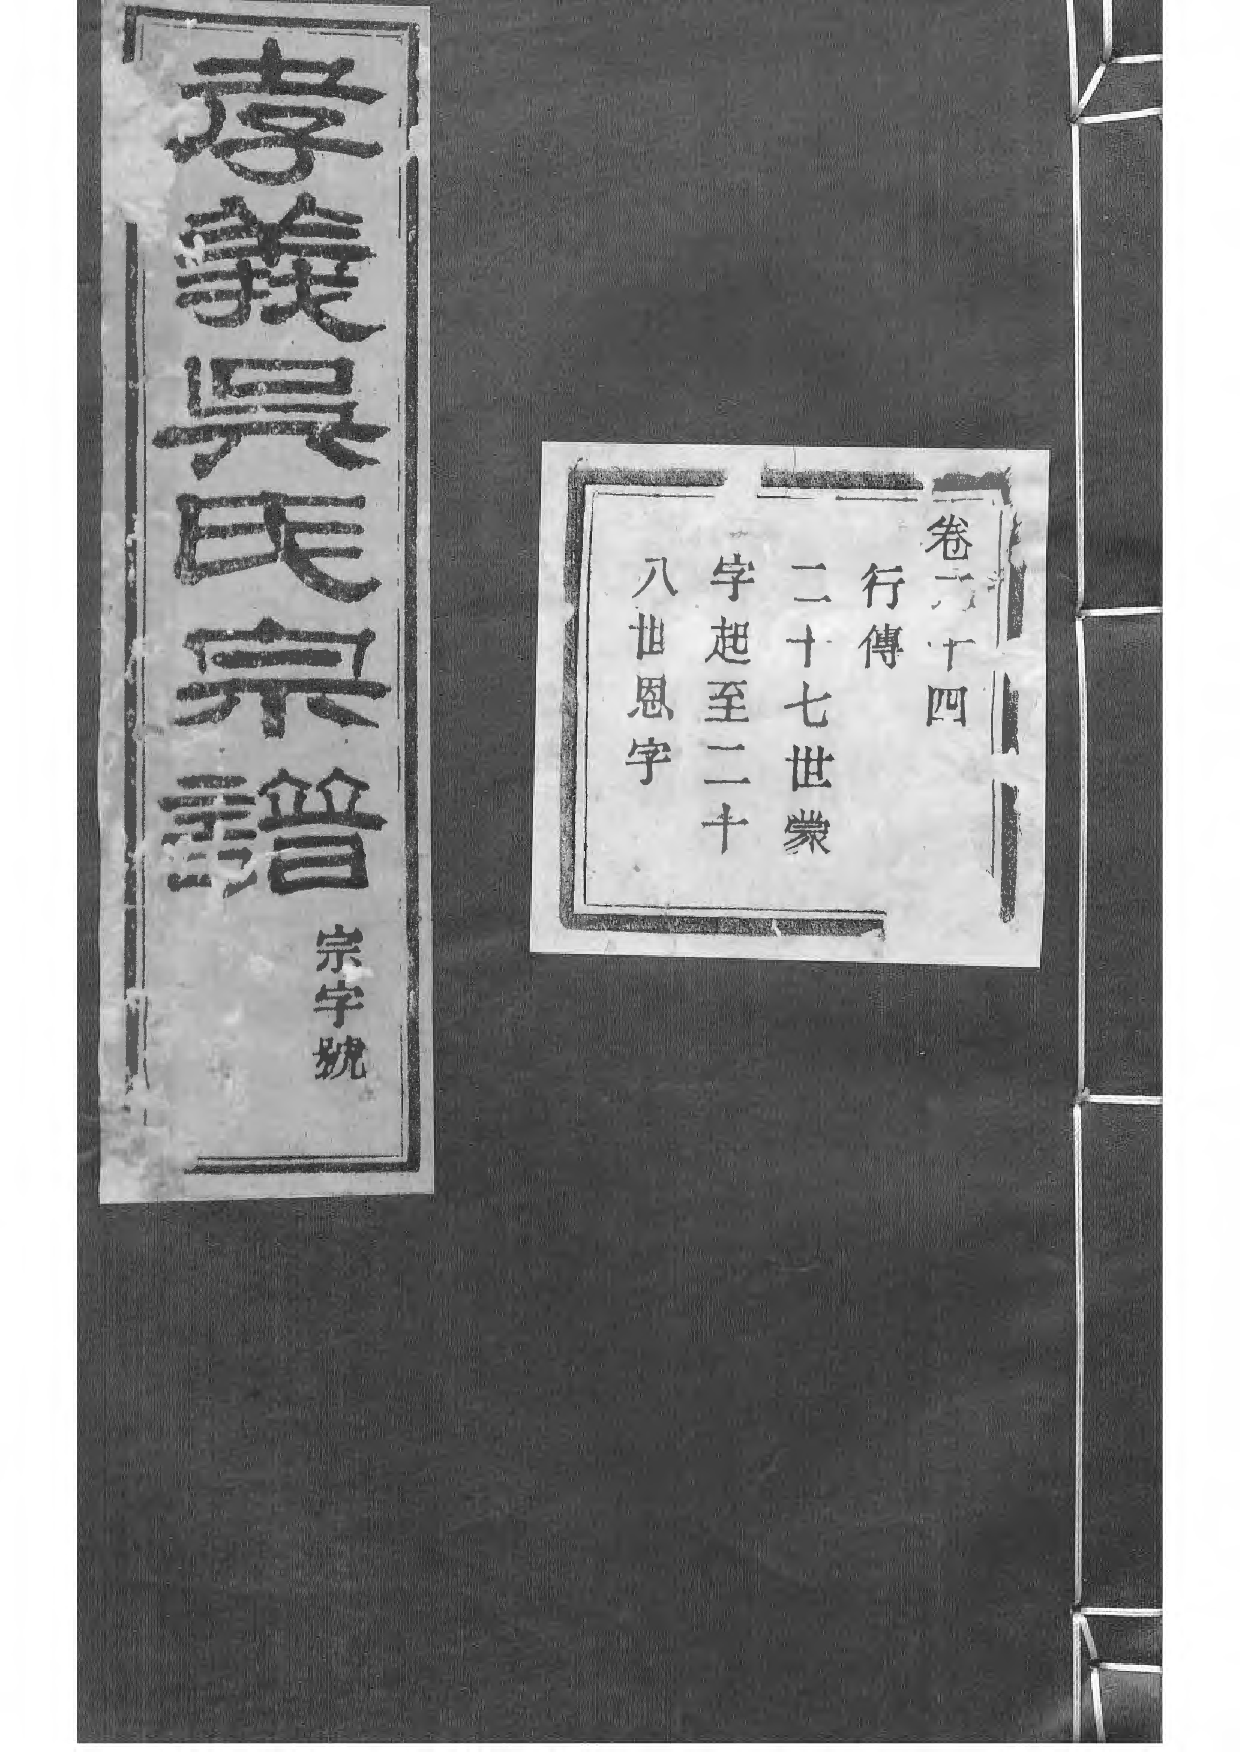 卷六十四
行傳
二十七世蒙
字起至二十
八世恩字
孝義吳氏宗譜
宗字號